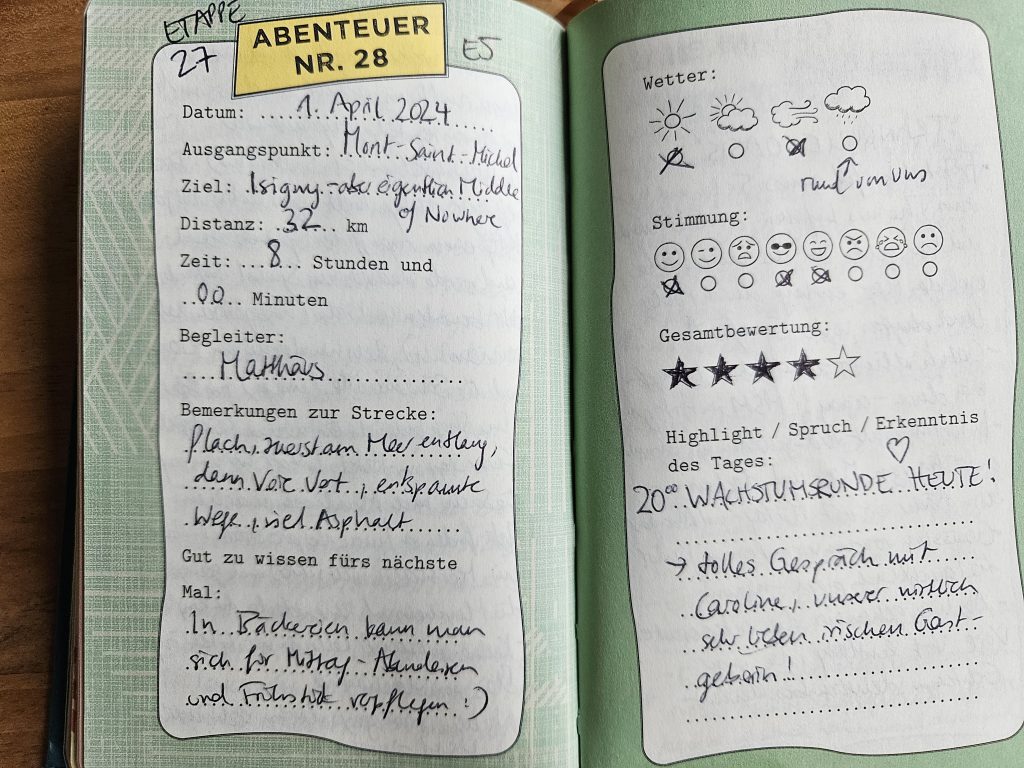 ETAPPE
27
ABENTEUER
NR. 28
E5
Datum: 1. April 2024
Ausgangspunkt: Mont-Saint-Michel
Ziel: Isigny - aber eigentlich Middle
of Nowhere
Distanz: 32 km
Zeit: 8 Stunden und
00 Minuten
Begleiter:
Matthäus
Bemerkungen zur Strecke:
flach, zuerst am Meer entlang,
dann Voie Vert, entspannte
Wege, viel Asphalt
Gut zu wissen fürs nächste
Mal:
In Bäckereien kann man
sich für Mittag- Abendessen
und Frühstück verpflegen :)
Wetter:
rund von uns
Stimmung:
Gesamtbewertung:
Highlight / Spruch / Erkenntnis
des Tages:
20⁰⁰ WACHSTUMSRUNDE HEUTE!
→ tolles Gespräch mit
Caroline, unserer wirklich
sehr lieben irischen Gast-
geberin!